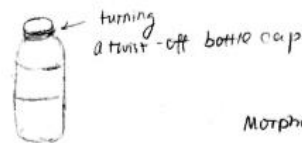 turning
a twist-off bottle cap
Morph